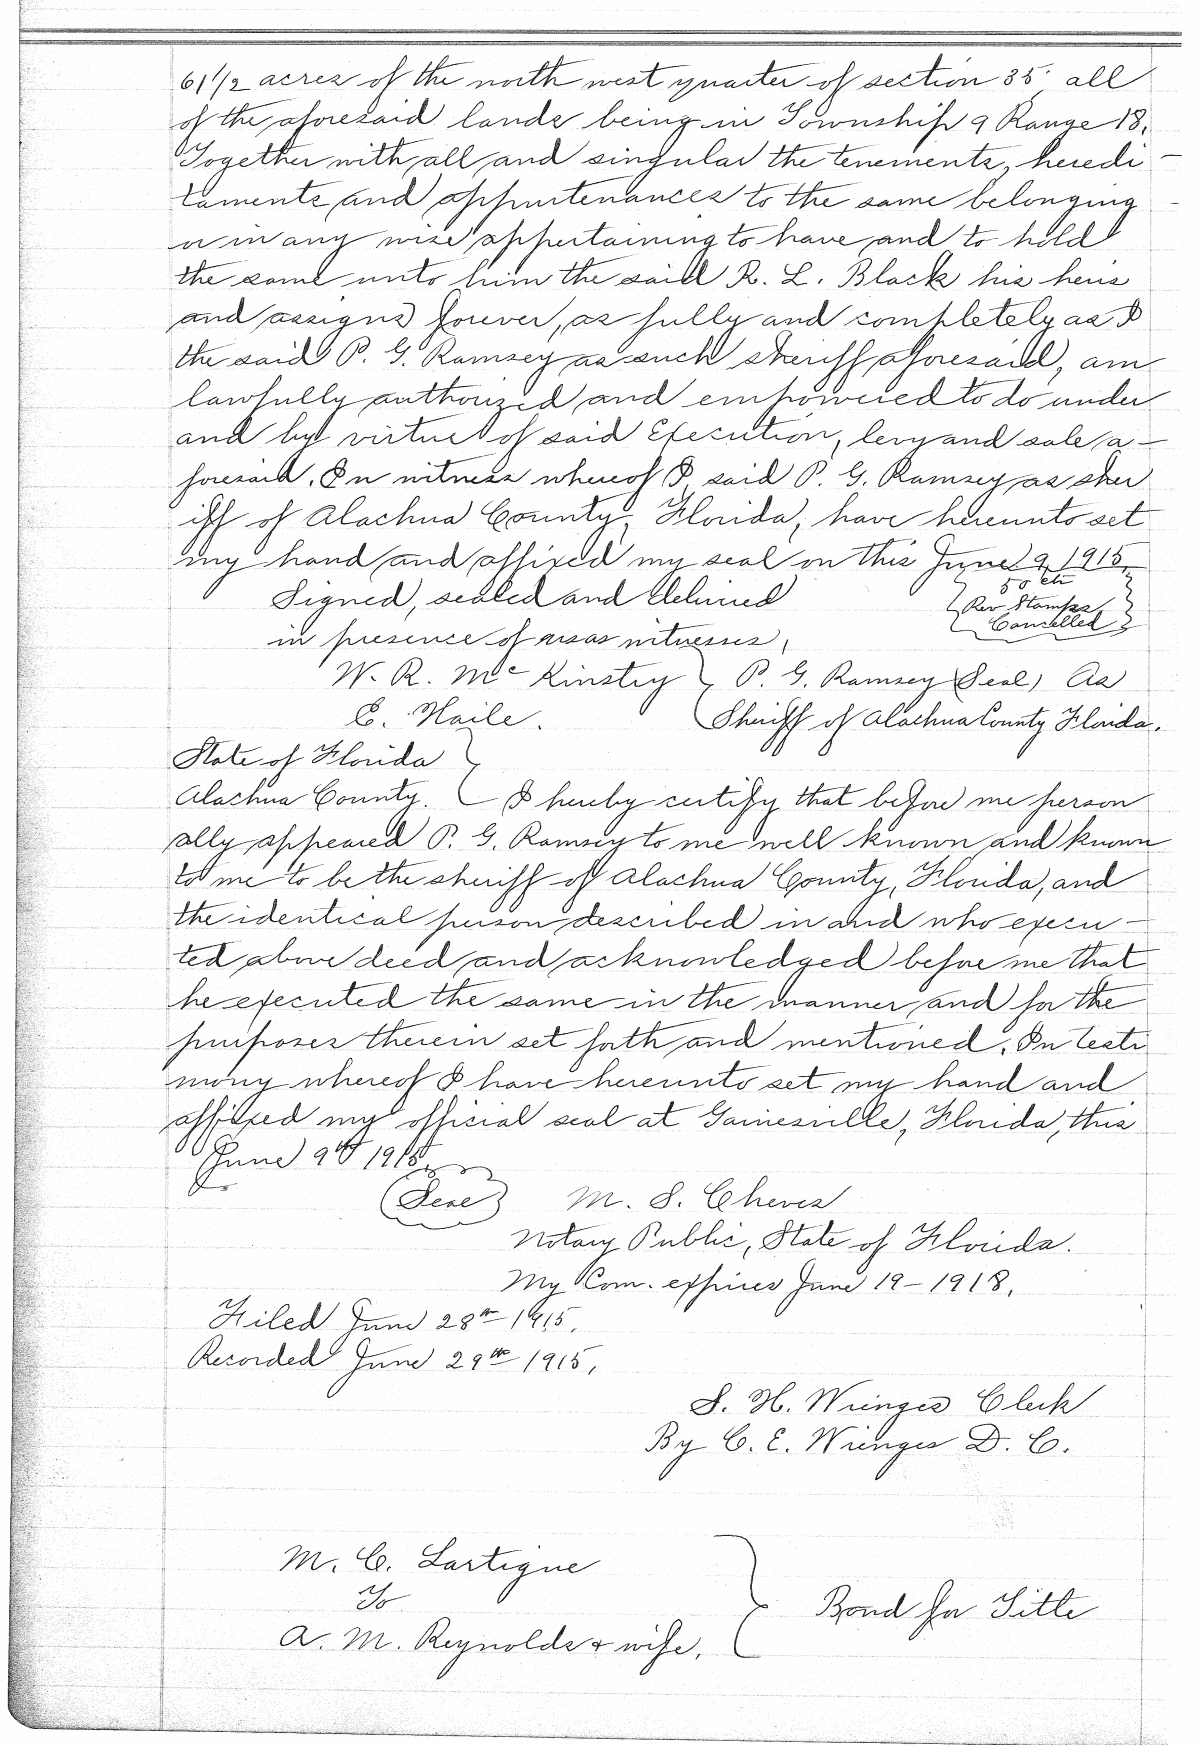 61 1/2 acres of the north west quarter of section 35 all
of the aforesaid lands being in Township 9 Range 18,
Together with all and singular the tenements, heredi -
taments and appurtenances to the same belonging
or in any wise appertaining to have and to hold
the same unto him the said R. L. Black his heirs
and assigns forever, as fully and completely as I
the said P. G. Ramsey as such sheriff aforesaid, am
lawfully authorized and empowered to do under
and by virtue of said Execution, levy and sale a-
foresaid. In witness whereof I said P. G. Ramsey as sher
iff of Alachua County, Florida, have hereunto set
my hand and affixed my seal on this June 9, 1915.
50 cts
Signed, sealed and delivered
Rev Stamps,
Cancelled
in presence of us as witnesses,
W. R. McKinstry
P. G. Ramsey (Seal) As
E. Haile.
Sheriff of Alachua County Florida.
State of Florida
Alachua County. I hereby certify that before me person
ally appeared P. G. Ramsey to me well known and known
to me to be the sheriff of Alachua County, Florida, and
the identical person described in and who execu-
ted above deed and acknowledged before me that
he executed the same in the manner and for the
purposes therein set forth and mentioned. In testi
mony whereof I have hereunto set my hand and
affixed my official seal at Gainesville, Florida, this
June 9th 1915.
(Seal) M. S. Cheves
Notary Public, State of Florida.
My Com. expires June 19-1918.
Filed June 28th 1915.
Recorded June 29th 1915,
S. H. Wienges Clerk
By C. E. Wienges D. C.
M. C. Lartigue
To
Bond for Title
A. M. Reynolds & wife,